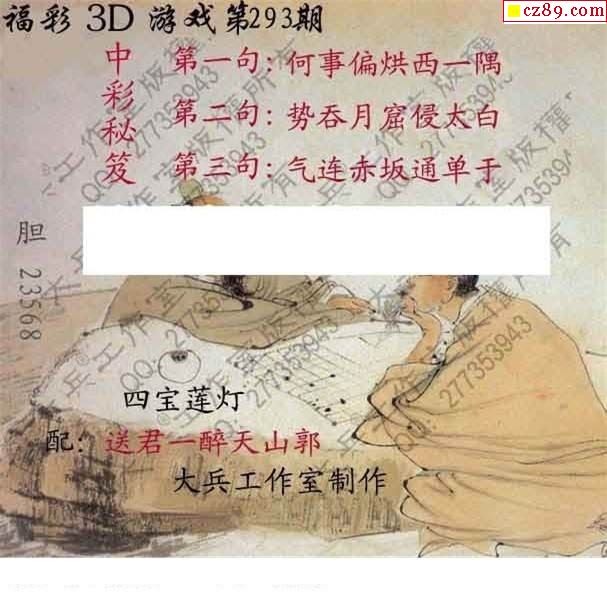 福彩 3D 游戏第293期
cz89.com
中彩秘笈
第一句：何事偏烘西一隅
第二句：势吞月窟侵太白
第三句：气连赤坂通单于
胆 23568
四宝莲灯
配：送君一醉天山郭
大兵工作室制作
大兵工作室版權所有
QQ:277353943